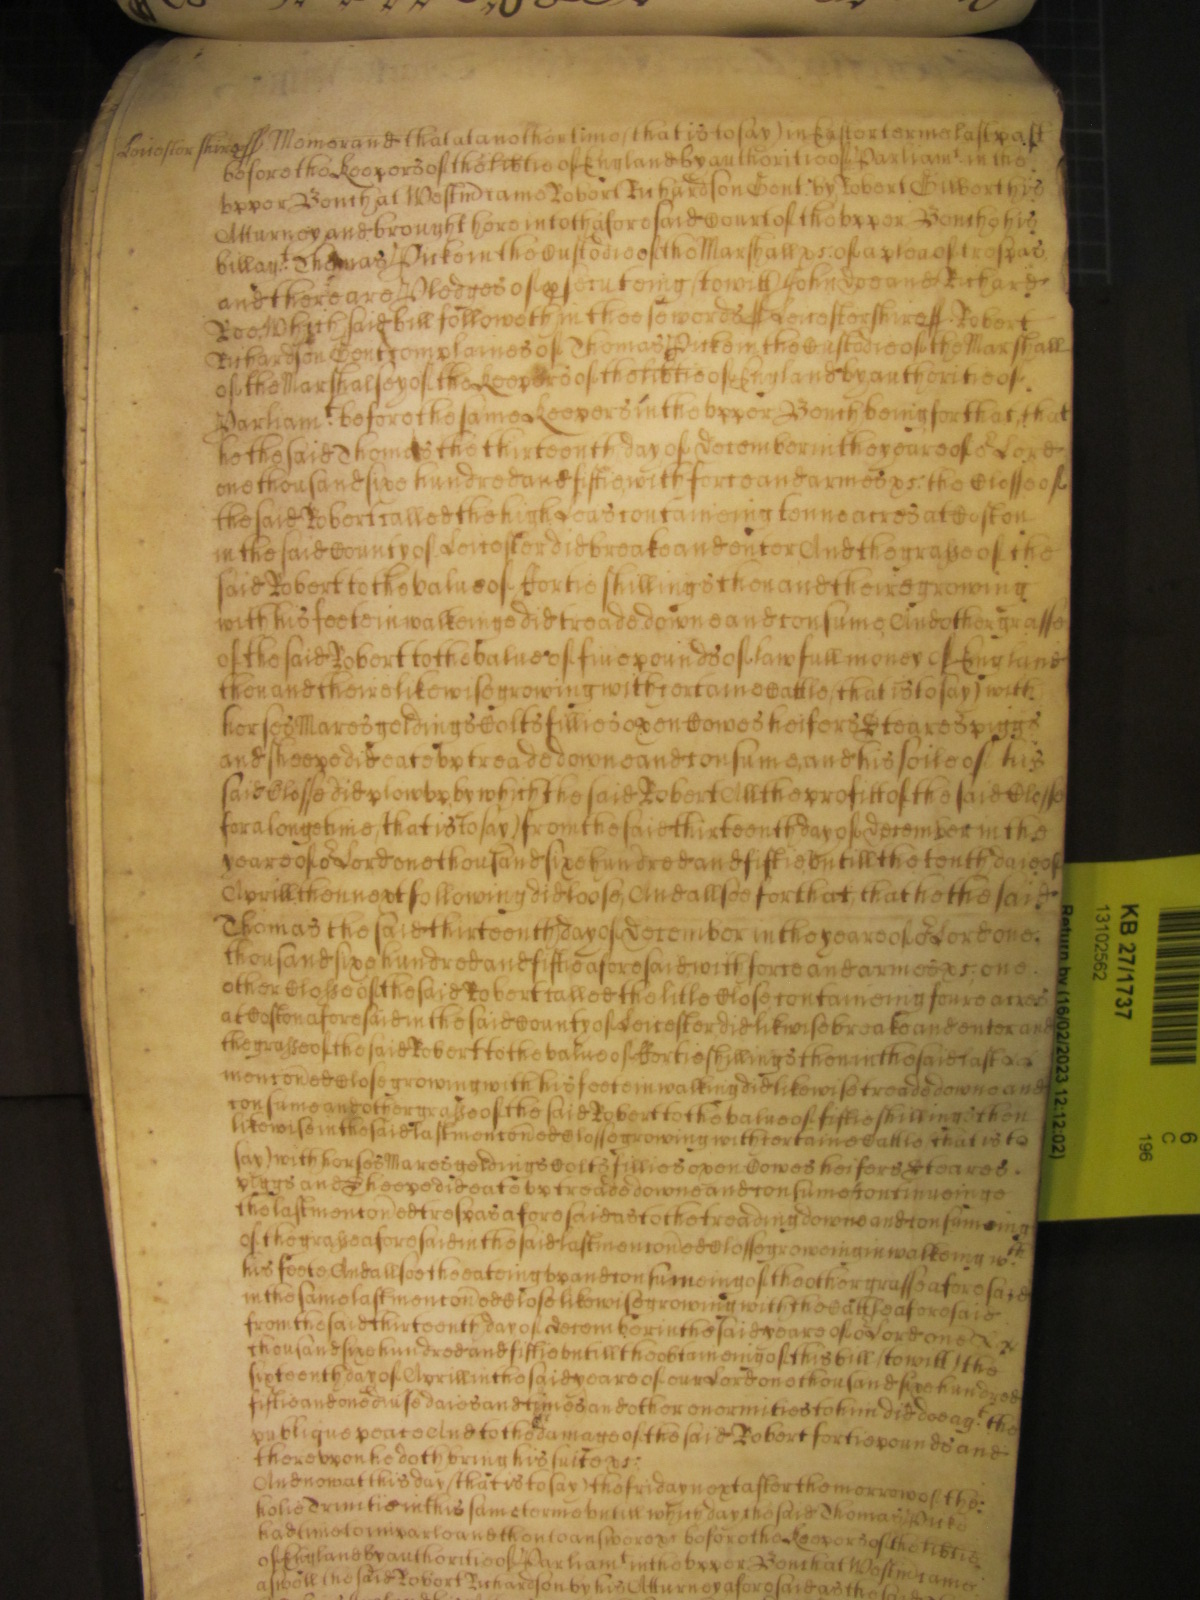 Leicestershire ss Memorand that at another time (that is to say) in Easter terme last past
before the Keepers of the libtie of England by authoritie of Parliamt. in the
vpper Bench at Westm came Robert Richardson Gent by Robert his
Atturney and brought here into the aforesaid Court of the vpper Bench his
bill agt. Thomas in the Custodie of the Marshall &c. of a plea of trespas
and there are Pledges of psecuteing (to witt) John doe and Richard
Roe, Which said bill followeth in theese words ss Leicestershire ss Robert
Richardson Gent complaines of Thomas in the Custodie of the Marshall
of the Marshalsey of the Keepers of the libtie of England by authoritie of
Parliamt. before the same Keepers in the vpper Bench being for that, that
he the said Thomas the thirteenth day of december in the yeare of or Lord
one thousand sixe hundred and fiftie, with force and armes &c. the Closse of
the said Robert called the high Leas containeing tenne acres at Coston
in the said County of Leicester did breake and enter And the grasse of the
said Robert to the value of ffortie shillings then and theire growing
with his feete in walkeinge did treade downe and consume, And other grasse
of the said Robert to the value of five pounds of lawfull money of England
then and theire likewise growing with certaine Cattle (that is to say) with
horses Mares geldings Colts fillies oxen Cowes heifers Steares piggs
and sheepe did eate vp treade downe and consume, and his soile of his
said Closse did plow vp by which the said Robert All the profitt of the said Closse
for a longe time (that is to say) from the said thirteenth day of december in the
yeare of or Lord one thousand sixe hundred and fiftie vntill the tenth daie of
Aprill then next following did loose, And allsoe for that, that he the said
Thomas the said thirteenth day of december in the yeare of or Lord one
thousand sixe hundred and fiftie aforesaid with force and armes &c. one
other Closse of the said Robert called the little Close containeing foure acres
at Coston aforesaid in the said County of Leicester did likwise breake and enter and
the grasse of the said Robert to the value of ffortie shillings then in the said last
menconed Close growing with his feete in walking did likewise treade downe and
consume and other grasse of the said Robert to the value of fiftie shillings then
likewise in the said last menconed Closse growing with certaine Cattle that is to
say) with horses Mares geldings Colts fillies oxen Cowes heifers Steares
piggs and Sheepe did eate vp treade downe and consume Continueinge
the last menconed trespas aforesaid as to the treading downe and consumeing
of the grasse aforesaid in the said last menconed Closse groweing in walkeing wth
his feete, And allsoe the eateing vp and consumeing of the other grasse aforesaid
in the same last menconed Close likewise growing with the Cattle aforesaid
from the said thirteenth day of december in the said yeare of or Lord one
thousand sixe hundred and fiftie vntill the obtaineing of this bill (to witt) the
sixteenth day of Aprill in the said yeare of our Lord one thousand sixe hundred
fiftie and one divse daies and tymes and other enormities to him did doe agt. the
publique peace And to the damage of the said Robert fortie pounds and
therevpon he doth bring his suite &c:
And now at this day (that is to say) the friday next after the morrow of the
holie Trinitie in this same terme vntill which day the said Thomas
had time to imparle and then to answere &c before the Keepers of the libtie
of England by authoritie of Parliamt in the vpper Bench at Westm came
aswell the said Robert Richardson by his Atturney aforesaid as the said
KB 27/1737
13102562
Return by (16/02/2023 12:12:02)
6
C
196